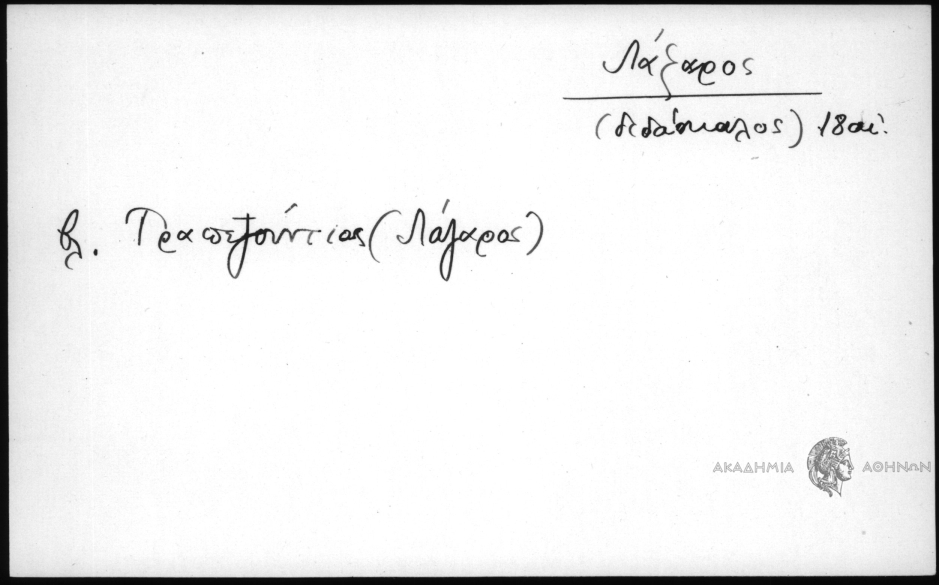 Λάζαρος
(διδάσκαλος) 18 αἰ.
βλ. Τραπεζούντιος (Λάζαρος)
ΑΚΑΔΗΜΙΑ ΑΘΗΝΩΝ